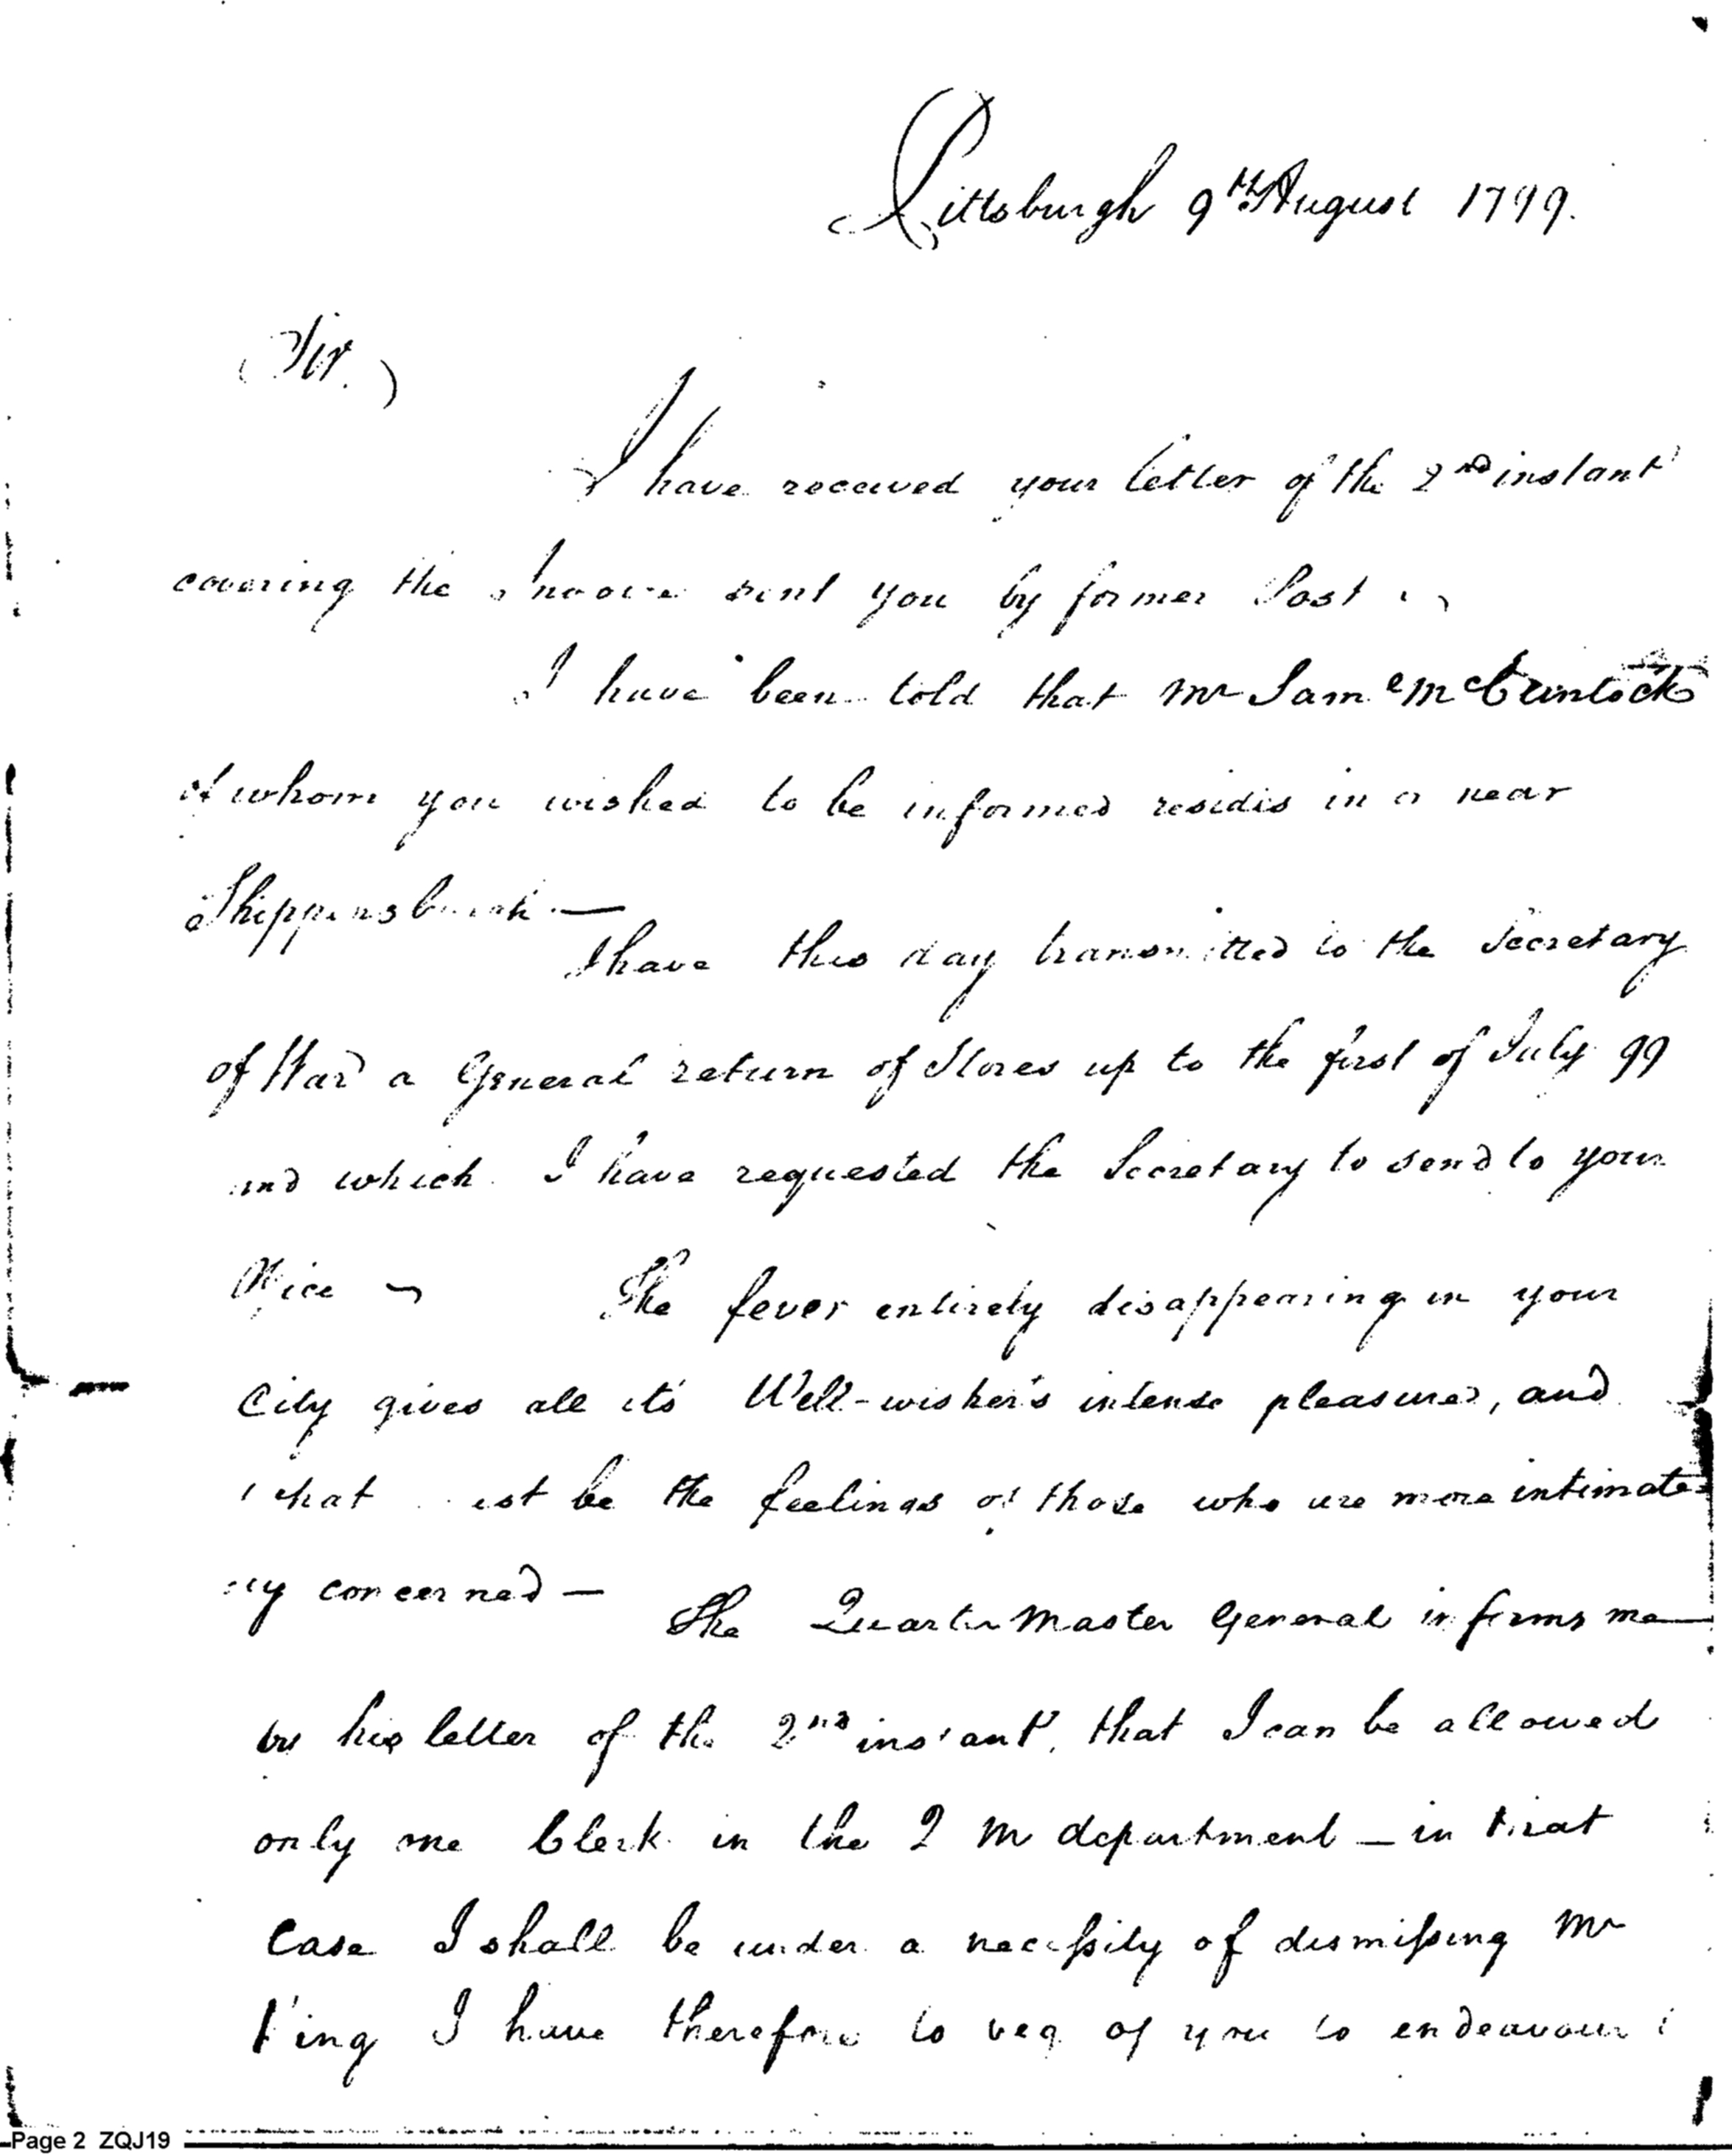 Pittsburgh 9th August 1799.
Sir.
I have received your letter of the 2nd instant
covering the Invoice sent you by former Post
I have been told that Mr Sam
of whom you wished to be informed resides in or near
Shippensburgh —
I have this day transmitted to the Secretary
of War a General return of Stores up to the first of July 99
and which I have requested the Secretary to send to your
Office
The fever entirely disappearing in your
City gives all it's Well-wisher's intense pleasure, and
what must be the feelings of those who are more intimate
ly concerned —
The Quarter Master General informs me
by his letter of the 2nd instant, that I can be allowed
only one Clerk in the Q M department — in that
Case I shall be under a necessity of dismissing Mr
King I have therefore to beg of you to endeavour
Page 2 ZQJ19